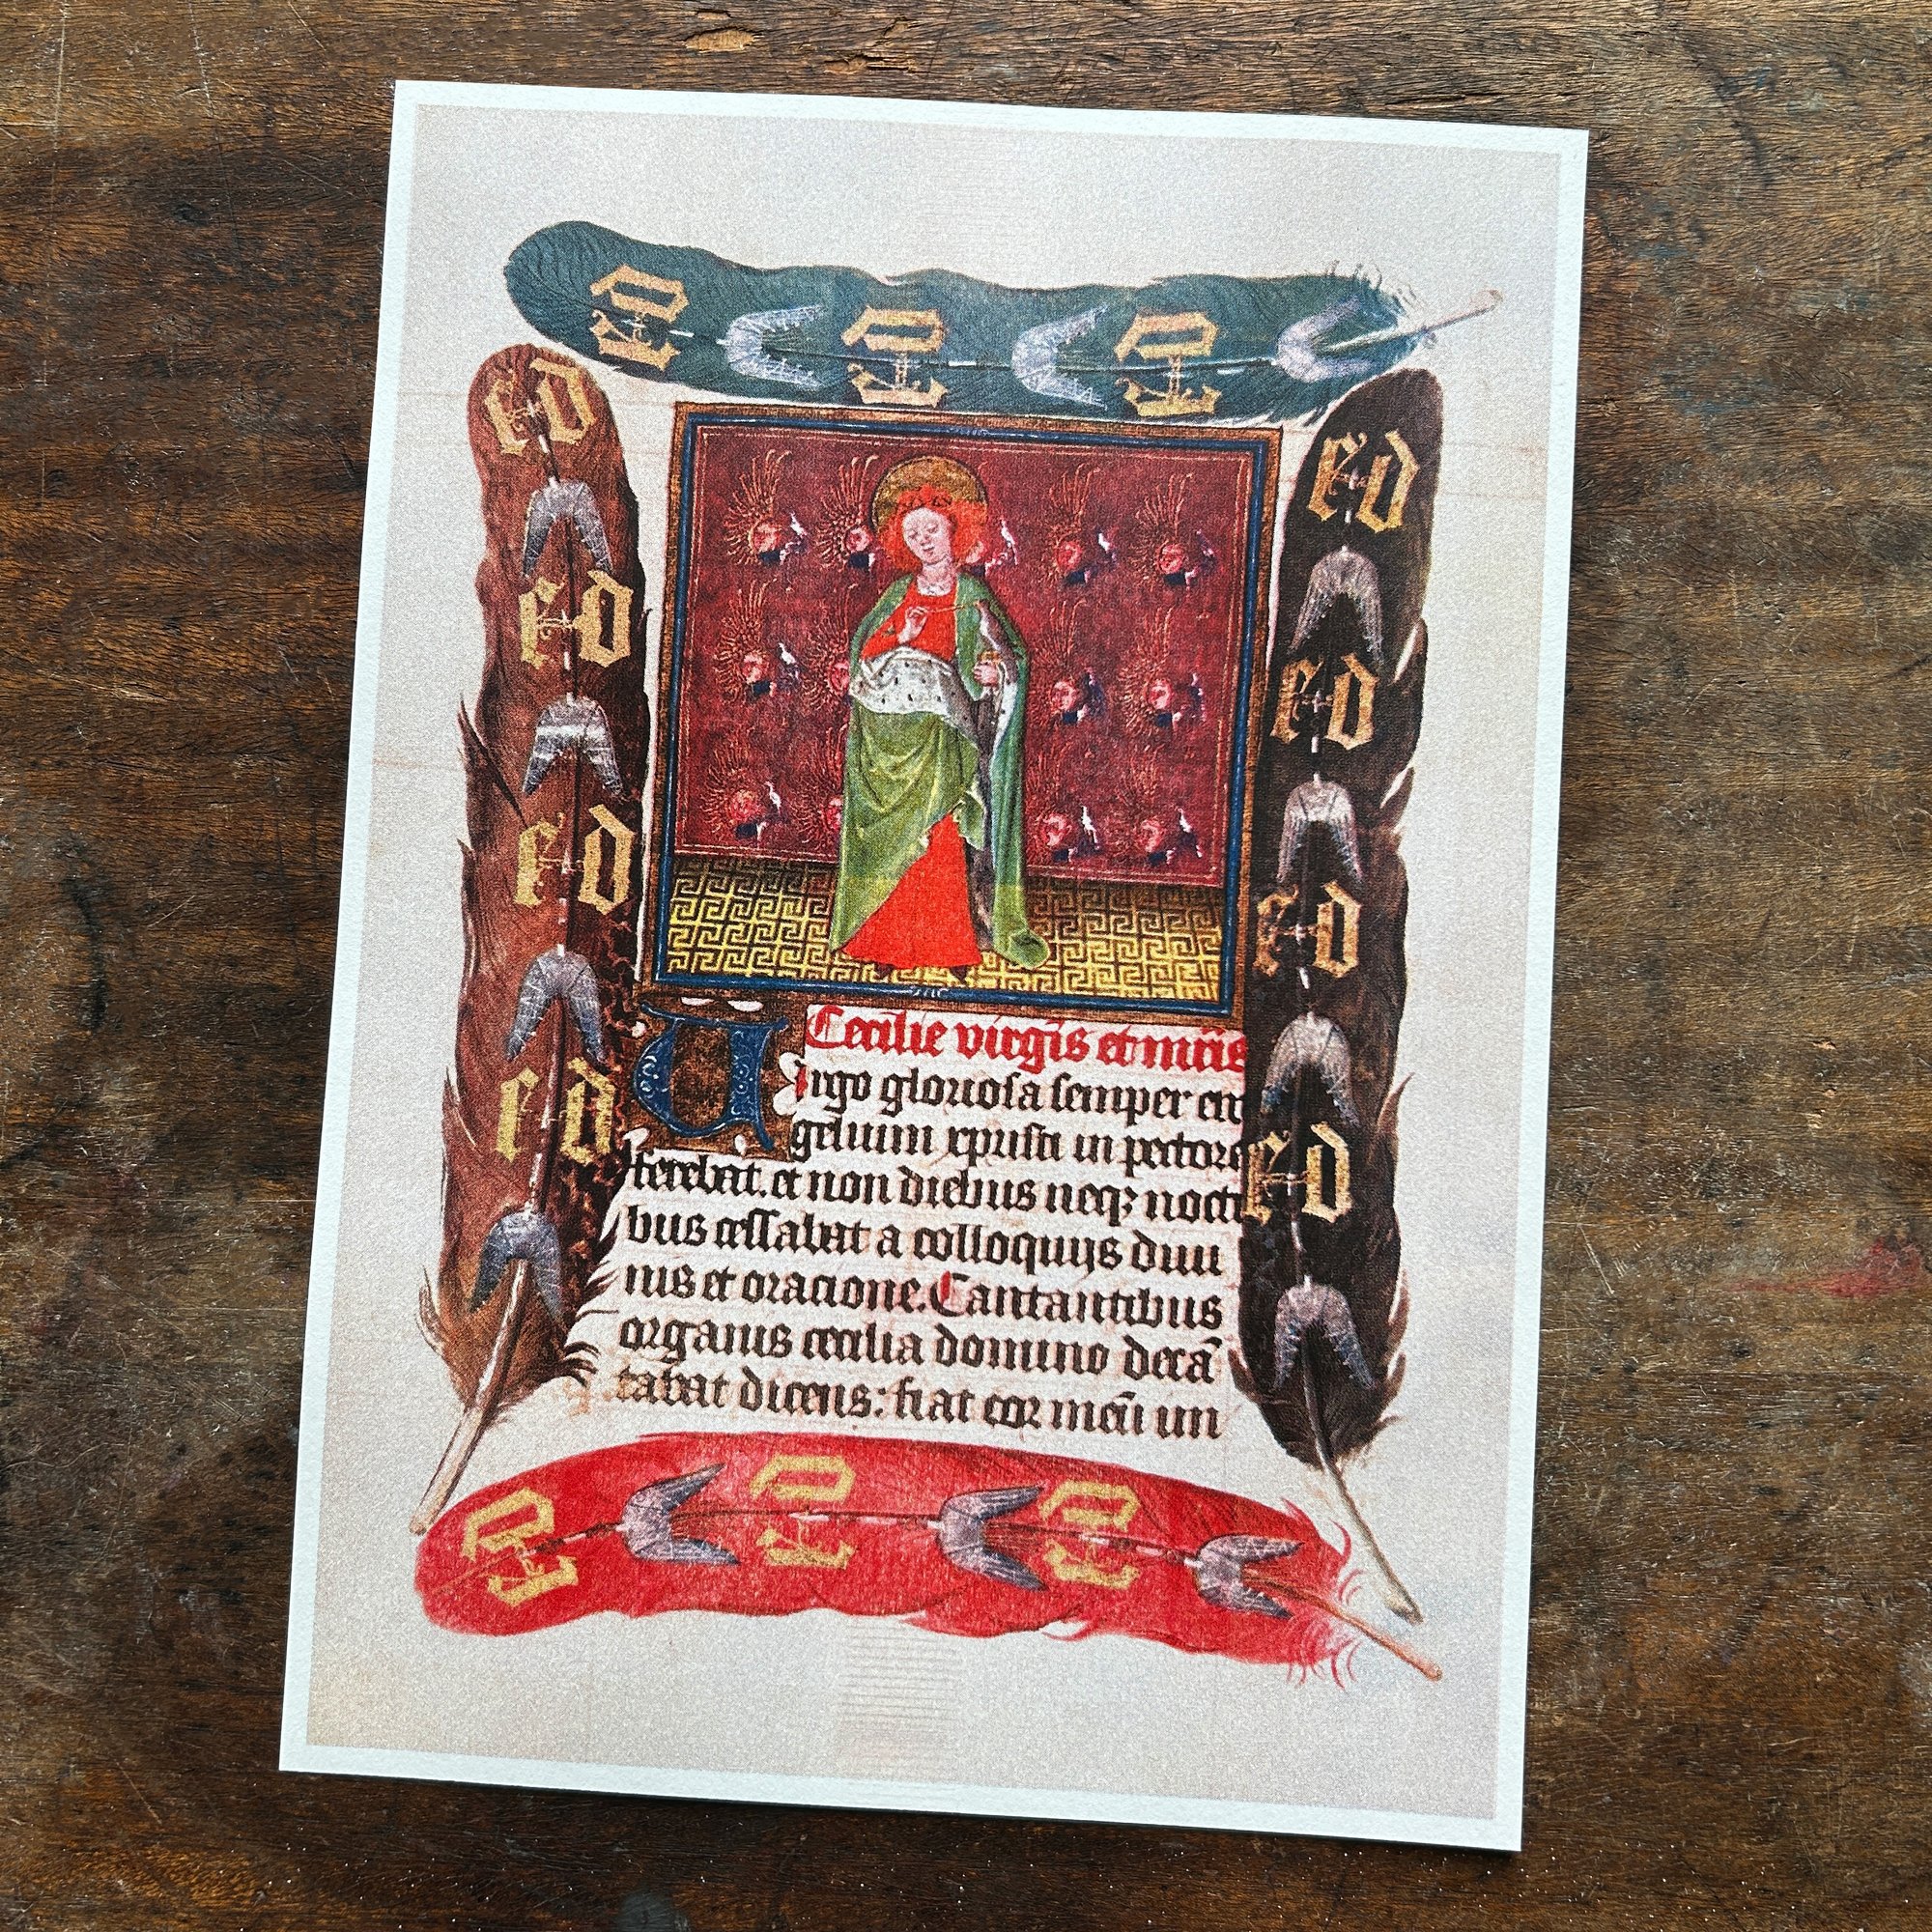 ed ed ed
ed
ed
ed
ed
Cecilie virgīs et mr̄is
Uirgo gloriosa semper eu
gelium xpristi in pectore
ferebat. et non diebus neqꝫ nocti
bus cessabat a colloquijs diui
nis et oracione. Cantantibus
organis cecilia domino decā
tabat dicens: fiat cor meū im
ed
ed
ed
ed
ed ed ed